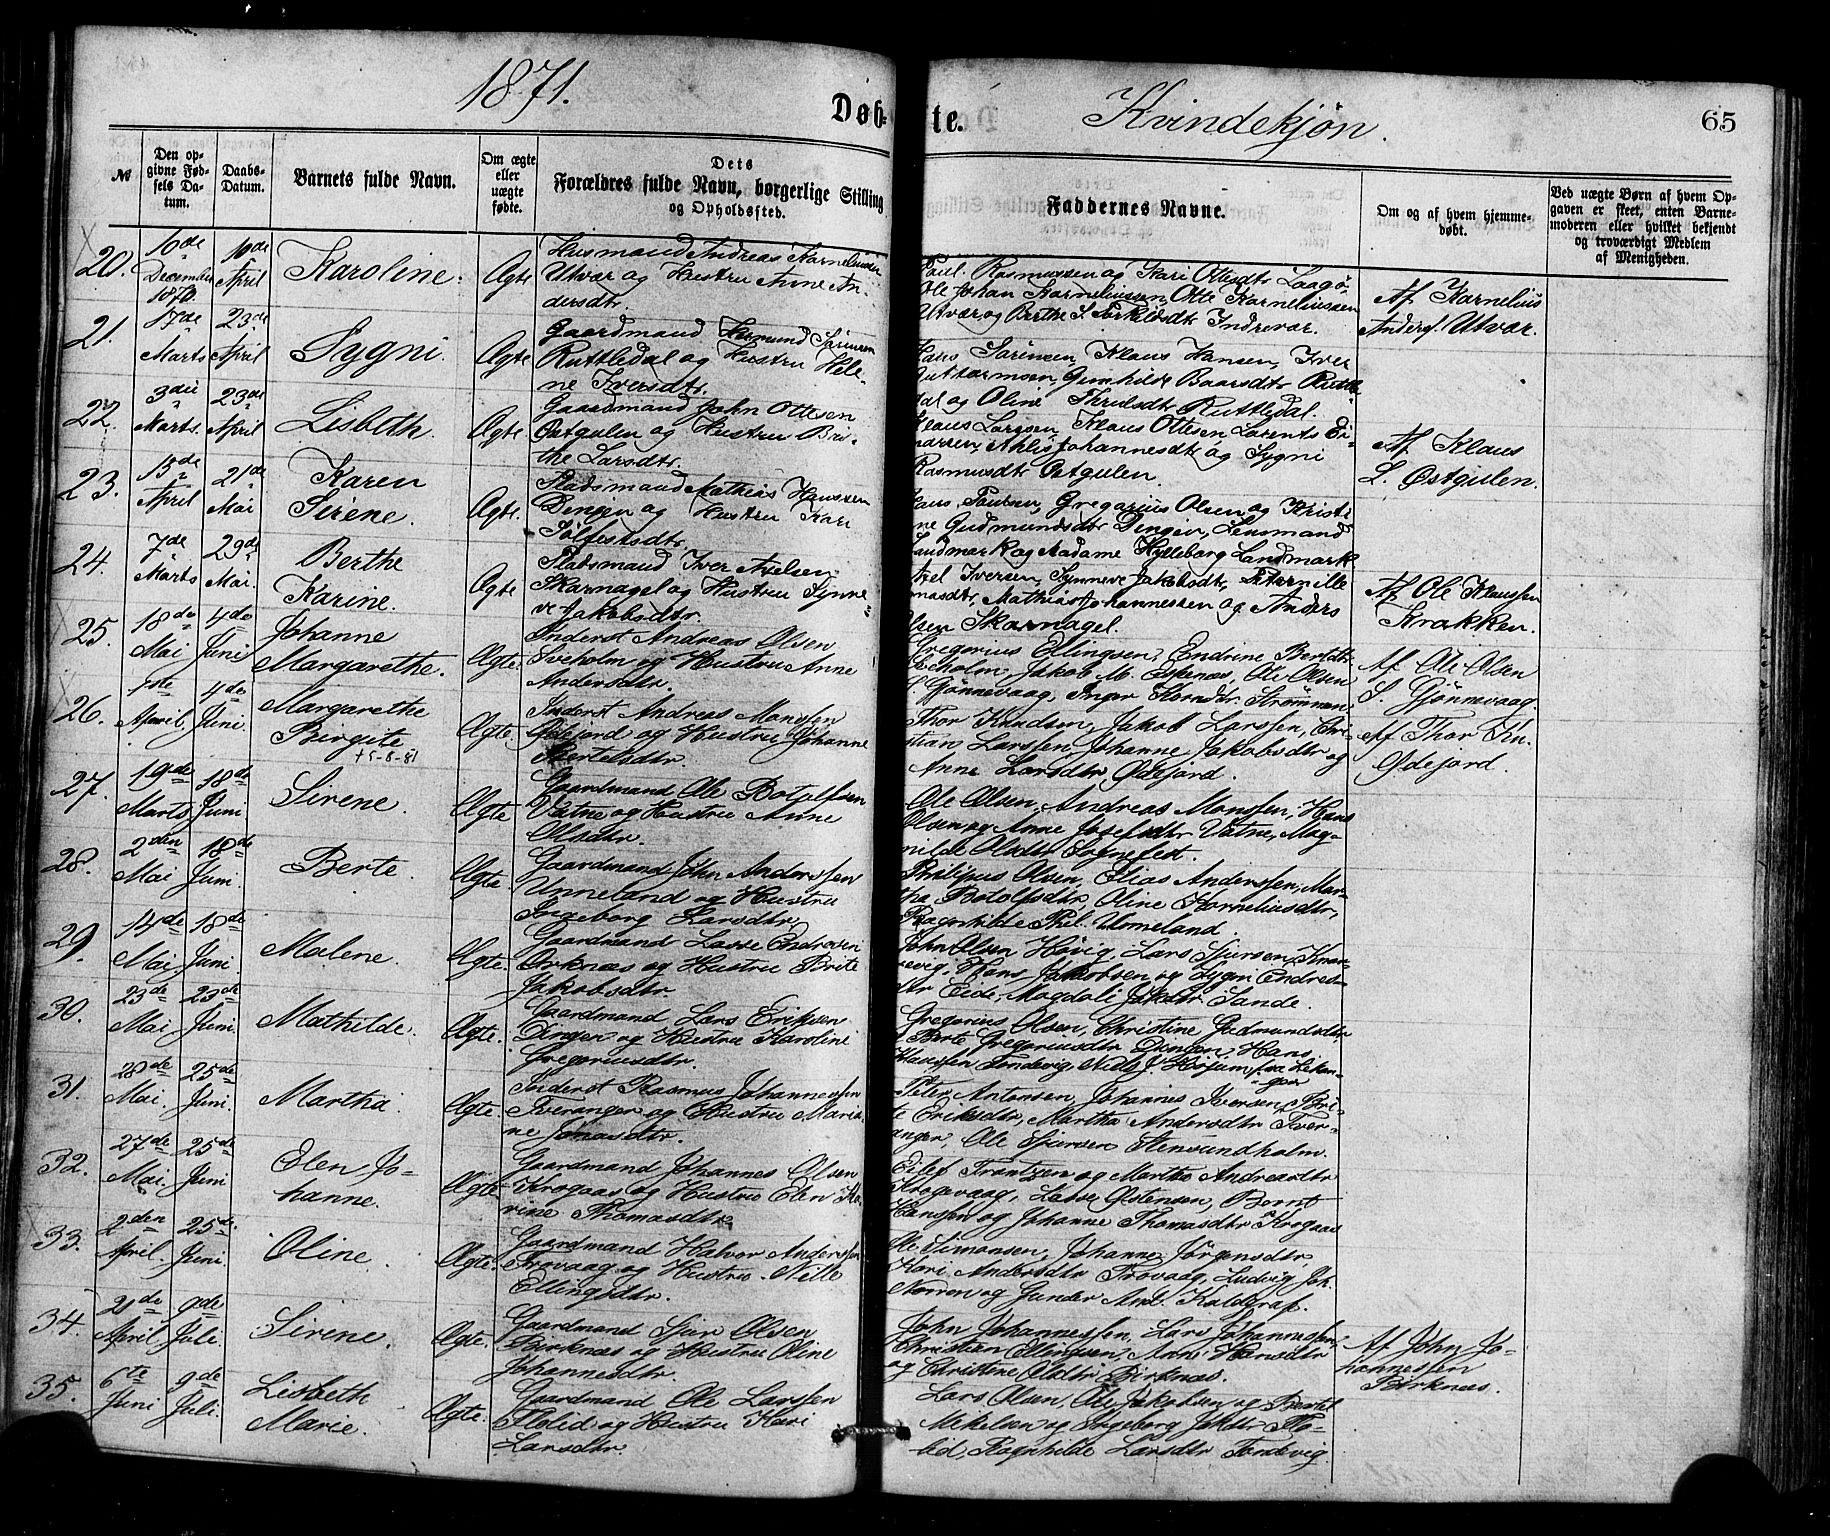 1871.
Døb-
te.
Kvindekjøn.
65
№
Den op-
givne Fød-
sels Da-
tum.
Daabs-
Datum.
Barnets fulde Navn.
Om ægte
eller
uægte
fødte.
Dets
Forældres fulde Navn, borgerlige Stilling
og Opholdssted.
Faddernes Navne.
Om og af hvem hjemme-
døbt.
Ved uægte Børn af hvem Op-
gaven er skeet, enten Barne-
moderen eller hvilket bekjendt
og troværdigt Medlem
af Menigheden.
20.
10de
December
1870.
10de
April
Karoline.
Ægte
Husmand Andreas Karneliussen
Utvær og Hustru Anne An-
dersdtr.
Paul Rasmussen og Kari Olisdtr Laagø,
Ole Johan Karneliussen, Otte Karneliussen
Utvær og Berthe S. Torkildsdtr Indrevær.
Af Karnelius
Anders. Utvær.
21.
17de
Marts
23de
April
Sygni.
Ægte
Gaardmand Hermund Sørensen
Ruttledal og Hustru Hele-
ne Iversdtr.
Hans Sørensen, Klaus Hansen, Iver
Guttormsen, Gunhilde Baarsdtr Ruttle-
dal og Oline Thrulsdtr Ruttledal.
22.
3die
Marts.
23de
April
Lisbeth.
Ægte
Gaardmand John Ottesen
Østgulen og Hustru Bri-
the Larsdtr.
Klaus Larssen, Klaus Ottesen, Larents Ei-
narsen, Ahlis Johannesdtr og Sygni
Rasmusdtr Østgulen.
Af Klaus
L. Østgulen.
23.
15de
April
21de
Mai
Karen
Sirene.
Ægte.
Pladsmand Mathias Hanssen
Dingen og Hustru Kari
Solfestsdtr.
Hans Paulsen, Gregarius Olsen og Kristi-
ne Gudmundsdtr Dingen, Lensmand
Landmark og Madame Hylleborg Landmark
24.
7de
Marts
29de
Mai.
Berthe
Karine.
Ægte
Pladsmand Iver Axelsen
Skarnagel og Hustru Synne-
ve Jakobsdtr.
Axel Iversen, Synneve Jakobsdtr, Pernille
Thomasdtr, Mathias Johannessen og Anders
Olsen Skarnagel.
Af Ole Klaussen
Krakken.
25.
18de
Mai
4de
Juni
Johanne
Margarethe.
Ægte.
Inderst Andreas Olsen
Sveholm og Hustru Anne
Andersdtr.
Gregorius Ellingsen, Endrine Berntdtr
Sveholm, Jakob M. Espenes, Ole Olsen
S. Gjønnevaag, Inger Korndtr Strømmen.
Af Ole Olsen
S. Gjønnevaag.
26.
1ste
April.
4de
Juni.
Margarethe
Birgite
† 5-8-81
Ægte.
Inderst Andreas Monssen
Ødejord og Hustru Johanne
Bertelsdtr.
Thor Knudsen, Jakob Larssen, Chri-
stian Larssen, Johanne Jakobsdtr og
Anne Larsdtr Ødejord.
Af Thor Kn.
Ødejord.
27.
19de
Marts
18de
Juni
Sirene.
Ægte
Gaardmand Ole Botolfsen
Vatne og Hustru Anne
Olsdtr.
Ole Olsen, Andreas Monssen, Hans
Olsen og Anne Josefsdtr Vatne, Mag-
nilde Olsdtr Sognefest.
28.
2den
Mai
18de
Juni.
Berte.
Ægte
Gaardmand John Anderssen
Unneland og Hustru
Ingeborg Larsdtr.
Philipus Olsen, Elias Anderssen, Mar-
tha Botolfsdtr, Oline Karneliusdtr,
Ragnhilde Phil. Unneland.
29.
14de
Mai
18de
Juni.
Malene.
Ægte.
Gaardmand Lasse Endresen
Orknæs og Hustru Brite
Jakobsdtr.
John Olsen Høvig, Lars Sjursen Knar-
revig, Hans Jakobsen og Sygni Endres-
dtr Eide, Magdali Jakdtr Sande.
30.
23de
Mai
23de
Juni
Mathilde.
Ægte.
Gaardmand Lars Eriksen
Dingen og Hustru Karoline
Gregoriusdtr.
Gregorius Olsen, Christine Gudmundsdtr
Berte Gregoriusdtr Dingen, Hans
Klaussen Tendevig, Niels J. Husum fra Lekan-
ger
31.
28de
Mai.
25de
Juni.
Martha.
Ægte.
Inderst Rasmus Johannessen
Tveranger og Hustru Maria-
ne Jonasdtr.
Peter Antonsen, Johannes Iversen, Bri-
te Eriksdtr, Martha Andersdtr Tver-
anger, Ole Sjursen Stensundholm.
32.
27de
Mai.
25de
Juni
Elen Jo-
hanne.
Ægte
Gaardmand Johannes Olsen
Krogaas og Hustru Elen Ka-
rine Thomasdtr.
Eilef Trontzen og Martha Andreasdtr
Krogevaag, Lasse Østensen, Bernt
Hanssen og Johanne Thomasdtr Krogaas
33.
2den
April.
25de
Juni
Oline.
Ægte.
Gaardmand Halvor Anderssen
Trovaag og Hustru Nille
Ellingsdtr.
Ole Simonsen, Johanne Jørgensdtr,
Kari Andersdtr Trovaag, Ludvig Joh.
Norren og Gunder And. Kaldgraf.
34.
21de
April
9de
Juli.
Sirene.
Ægte.
Gaardmand Siur Olsen
Birknæs og Hustru Oline
Johannesdtr.
John Johannessen, Lars Johannessen,
Christian Ellingsen, Anne Hansdtr
og Christine Olsdtr Birknæs.
Af John Jo-
hannessen
Birknæs.
35.
6te
Juni
9de
Juli.
Lisbeth
Marie.
Ægte.
Gaardmand Ole Larssen
Flolid og Hustru Kari
Larsdtr.
Lars Olsen, Ole Jakobsen og Bertil
Mikelsen og Ingeborg Jakdtr Flo-
lid, Ragnhilde Larsdtr Tendevig.